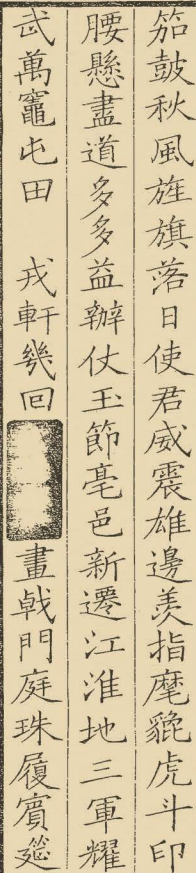 笳鼓秋風旌旗落日使君威震雄邊羡指麾貔虎斗印
腰懸盡道多多益辦仗玉節亳邑新遷江淮地三軍耀
武萬竈屯田　戎軒幾回　畫戟門庭珠履賓筵